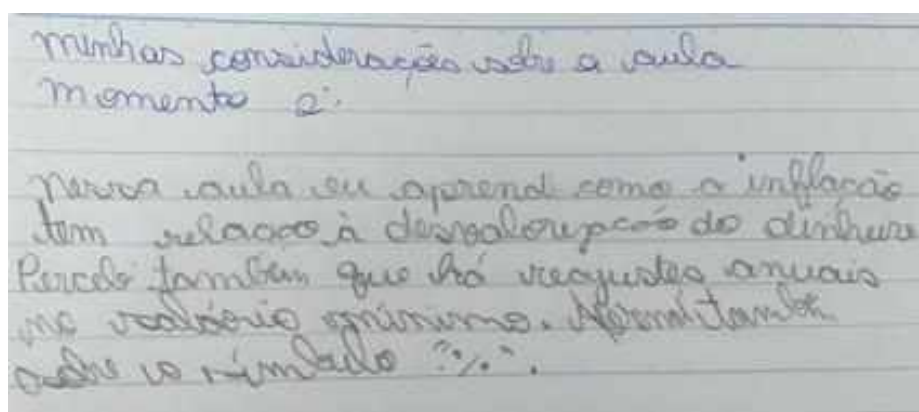 Minhas considerações sobre a aula
Momento 2:
Nessa aula eu aprendi como a inflação
tem relação à desvalorização do dinheiro
Percebi também que há reajustes anuais
no salário mínimo. também
sobre o símbolo "%".